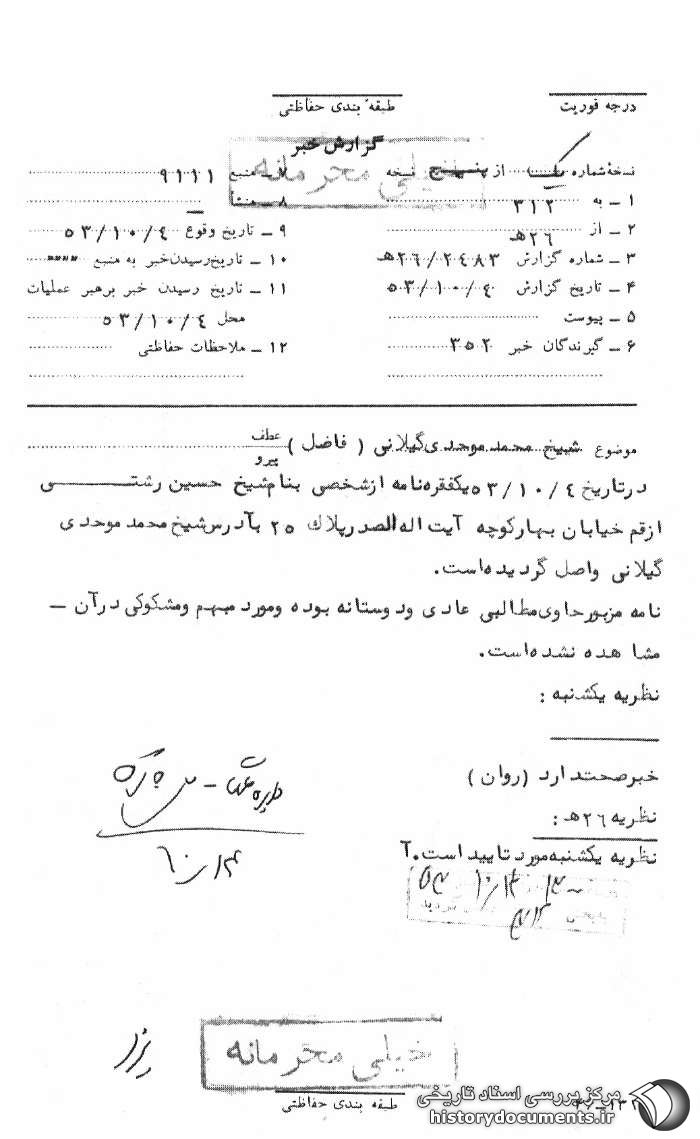 درجه فوریت
طبقه بندی حفاظتی
گزارش خبر
خیلی محرمانه
نسخه شماره یک از پنج نسخه
۱ ـ به ۳۱۲
۲ ـ از ۲۶ هـ
۳ ـ شماره گزارش ۲۶/۲۴۸۳هـ
۴ ـ تاریخ گزارش ۵۳/۱۰/۴
۵ ـ پیوست
۶ ـ گیرندگان خبر ۳۵۲
۷ ـ منبع ۹۱۱۱
۸ ـ منشأ ـ
۹ ـ تاریخ وقوع ۵۳/۱۰/۴
۱۰ ـ تاریخ رسیدن خبر به منبع """"
۱۱ ـ تاریخ رسیدن خبر برهبر عملیات
محل ۵۳/۱۰/۴
۱۲ ـ ملاحظات حفاظتی
موضوع شیخ محمد موحدی گیلانی ( فاضل ) عطف
پیرو
در تاریخ ۵۳/۱۰/۴ یکفقره نامه از شخصی بنام شیخ حسین رشتی
از قم خیابان بهار کوچه آیت اله الصدر پلاک ۲۵ بآدرس شیخ محمد موحدی
گیلانی واصل گردیده است.
نامه مزبور حاوی مطالبی عادی و دوستانه بوده و مورد مبهم و مشکوکی در آن ـ
مشاهده نشده است.
نظریه یکشنبه :
خبر صحت دارد (روان )
نظریه ۲۶هـ :
نظریه یکشنبه مورد تایید است. آ
۱۰/۱۴
خیلی محرمانه
طبقه بندی حفاظتی
مرکز بررسی اسناد تاریخی
historydocuments.ir